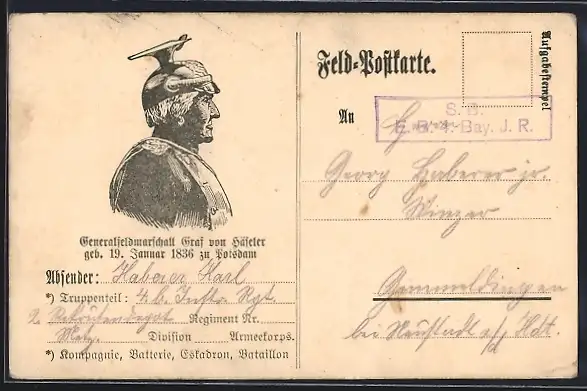 Feld-Postkarte.
Aufgabestempel
An
S. B.
E. B. 4. Bay. J. R.
Georg Haberer jr.
Winzer
Gimmeldingen
bei Neustadt a/d Hdt.
Generalfeldmarschall Graf von Häseler
geb. 19. Januar 1836 zu Potsdam
Absender: Haberer Karl
*) Truppenteil: 4. b. Inftr. Rgt.
2. Rekrutendepot Regiment Nr.
Metz Division Armeekorps.
*) Kompagnie, Batterie, Eskadron, Bataillon